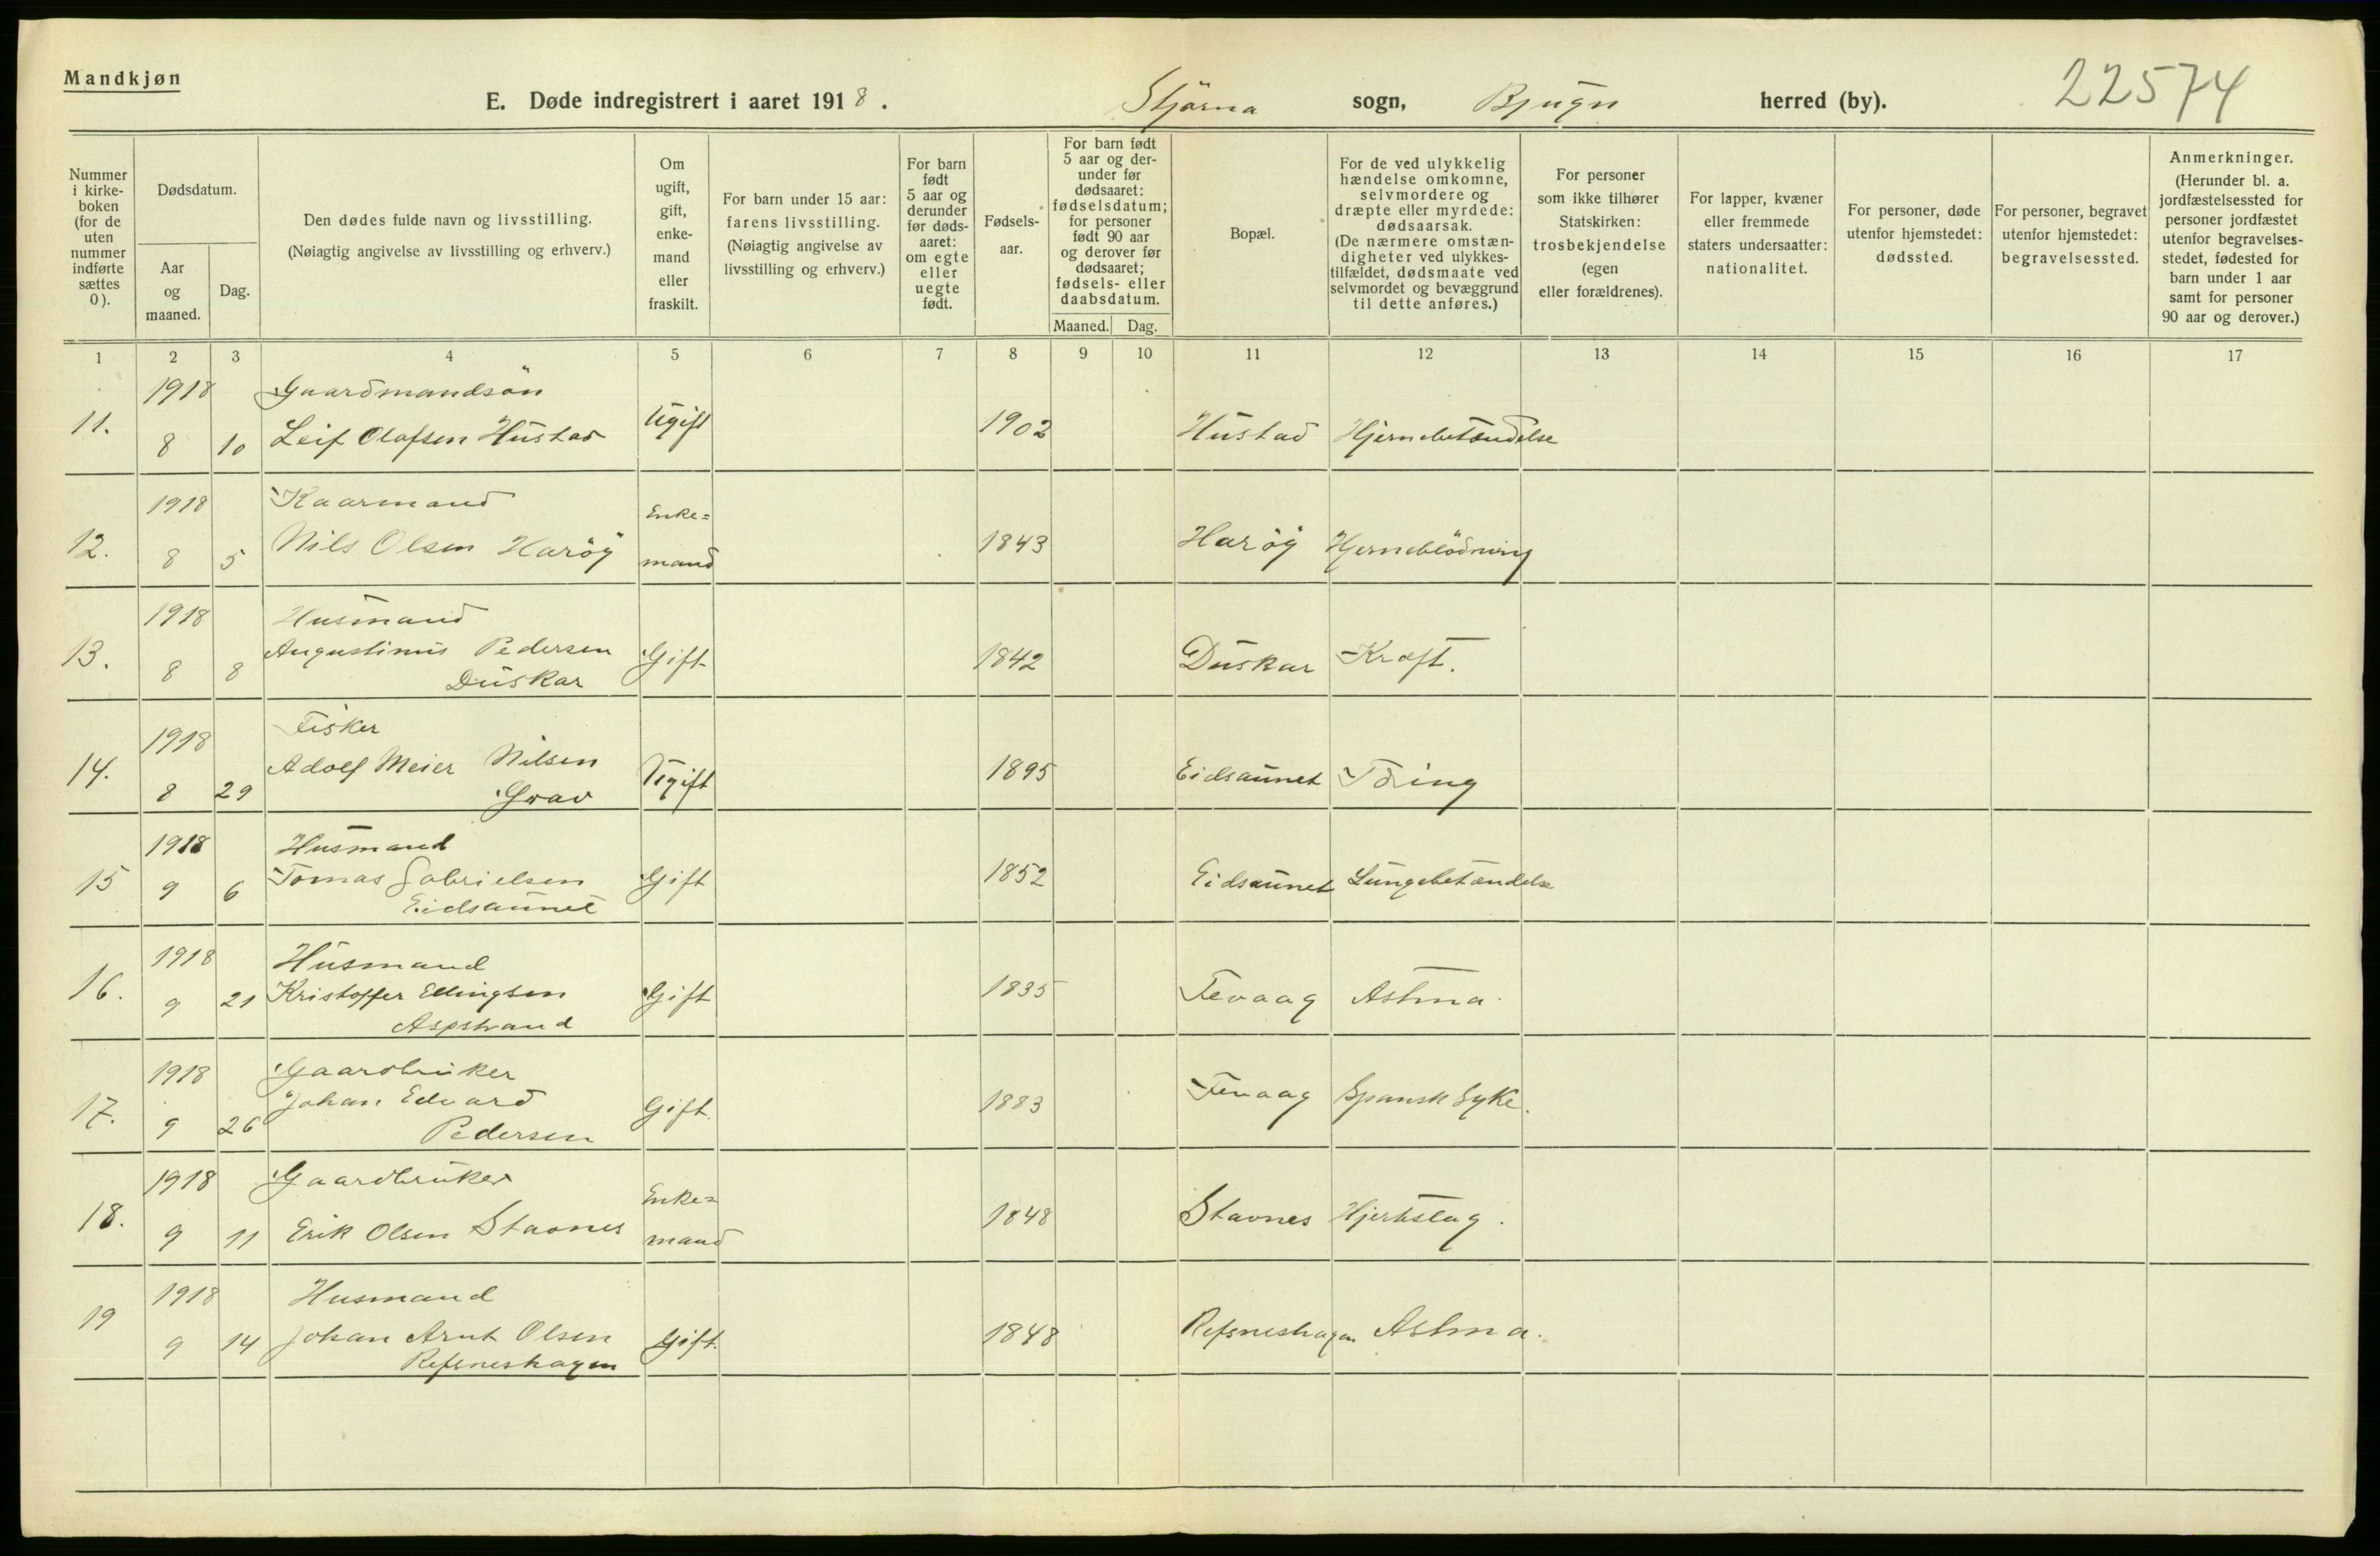 Mandkjøn
E. Døde indregistrert i aaret 1918.
Stjørna sogn, Bjugn herred (by).
22574
Nummer i kirke-boken (for de uten nummer indførte sættes 0).
Dødsdatum.
Aar og maaned.
Dag.
Den dødes fulde navn og livsstilling.
(Nøiagtig angivelse av livsstilling og erhverv.)
Om ugift, gift, enke-mand eller fraskilt.
For barn under 15 aar: farens livsstilling.
(Nøiagtig angivelse av livsstilling og erhverv.)
For barn født 5 aar og derunder før døds-aaret: om egte eller uegte født.
Fødsels-aar.
For barn født 5 aar og der-under før dødsaaret: fødselsdatum; for personer født 90 aar og derover før dødsaaret; fødsels- eller daabsdatum.
Maaned. Dag.
Bopæl.
For de ved ulykkelig hændelse omkomne, selvmordere og dræpte eller myrdede: dødsaarsak.
(De nærmere omstæn-digheter ved ulykkes-tilfældet, dødsmaate ved selvmordet og bevæggrund til dette anføres.)
For personer som ikke tilhører Statskirken: trosbekjendelse (egen eller forældrenes).
For lapper, kvæner eller fremmede staters undersaatter: nationalitet.
For personer, døde utenfor hjemstedet: dødssted.
For personer, begravet utenfor hjemstedet: begravelsessted.
Anmerkninger.
(Herunder bl. a. jordfæstelsessted for personer jordfæstet utenfor begravelses-stedet, fødested for barn under 1 aar samt for personer 90 aar og derover.)
1 2 3 4 5 6 7 8 9 10 11 12 13 14 15 16 17
1918 Gaardmandsøn
11. 8 10 Leif Olafsen Hustad Ugift 1902 Hustad Hjernebetændelse
1918 Kaarmand Enke=
12. 8 5 Nils Olsen Harøy mand 1843 Harøy Hjerneblødning
1918 Husmand
13. 8 8 Augustinus Pedersen Gift 1842 Duskar Kræft.
Duskar
1918 Fisker
14. 8 29 Adolf Meier Nilsen Ugift 1895 Eidsaunet Tæring
Grav
1918 Husmand
15 9 6 Tomas Gabrielsen Gift 1852 Eidsaunet Lungebetændelse
Eidsaunet
1918 Husmand
16. 9 21 Kristoffer Ellingsen Gift 1835 Fevaag Astma.
Aspstrand
1918 Gaardbruker
17. 9 26 Johan Edvard Gift. 1883 Fevaag Spansk Syke.
Pedersen
1918 Gaardbruker Enke=
18. 9 11 Erik Olsen Stavnes mand 1848 Stavnes Hjerteslag.
1918 Husmand
19 9 14 Johan Arnt Olsen Gift. 1848 Refsneshagen Astma.
Refsneshagen